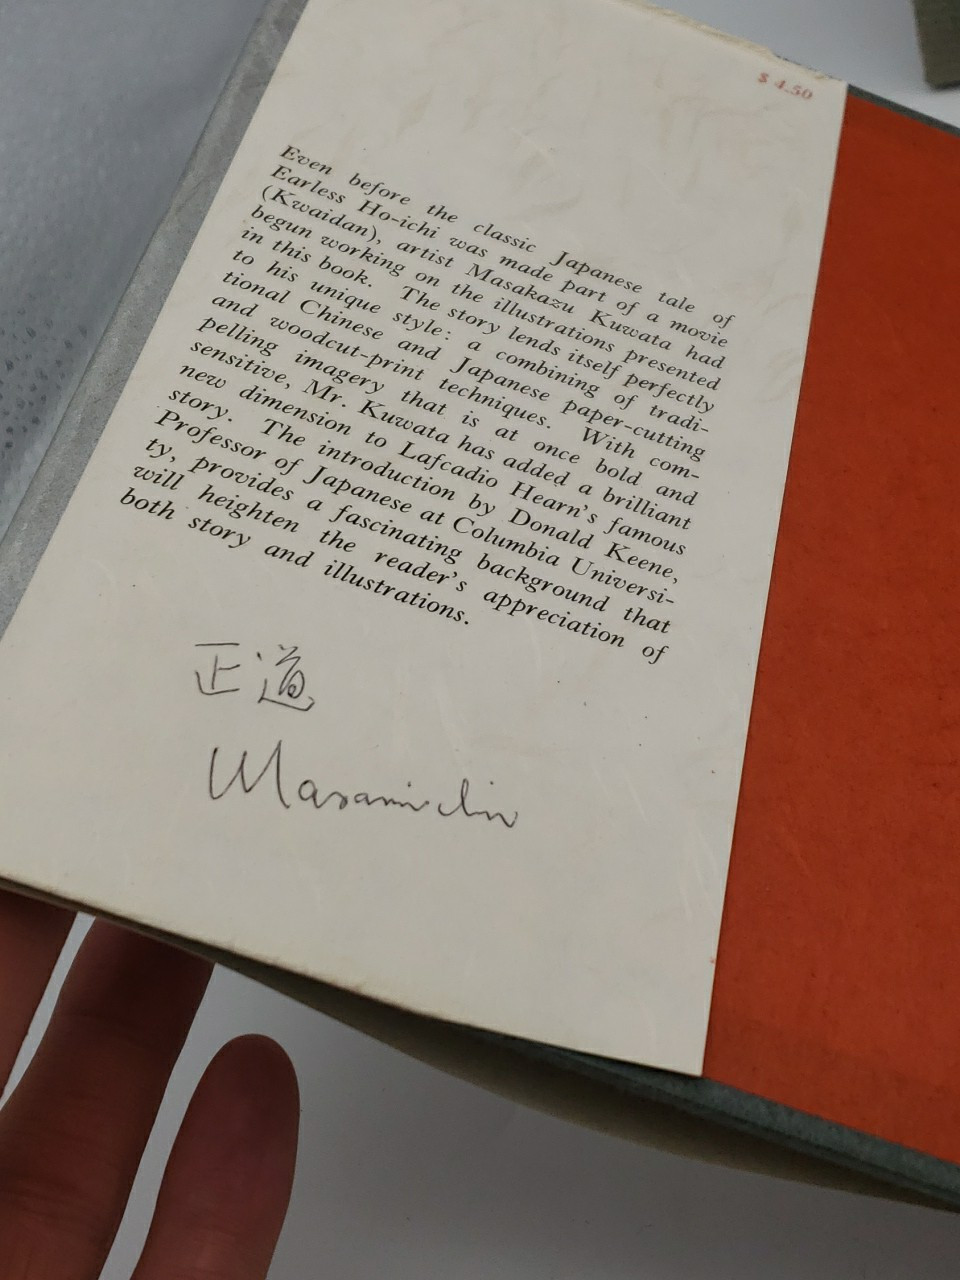 $ 4.50
Even before the classic Japanese tale of
Earless Ho-ichi was made part of a movie
(Kwaidan), artist Masakazu Kuwata had
begun working on the illustrations presented
in this book. The story lends itself perfectly
to his unique style: a combining of tradi-
tional Chinese and Japanese paper-cutting
and woodcut-print techniques. With com-
pelling imagery that is at once bold and
sensitive, Mr. Kuwata has added a brilliant
new dimension to Lafcadio Hearn's famous
story. The introduction by Donald Keene,
Professor of Japanese at Columbia Universi-
ty, provides a fascinating background that
will heighten the reader's appreciation of
both story and illustrations.
正道
Masamichi